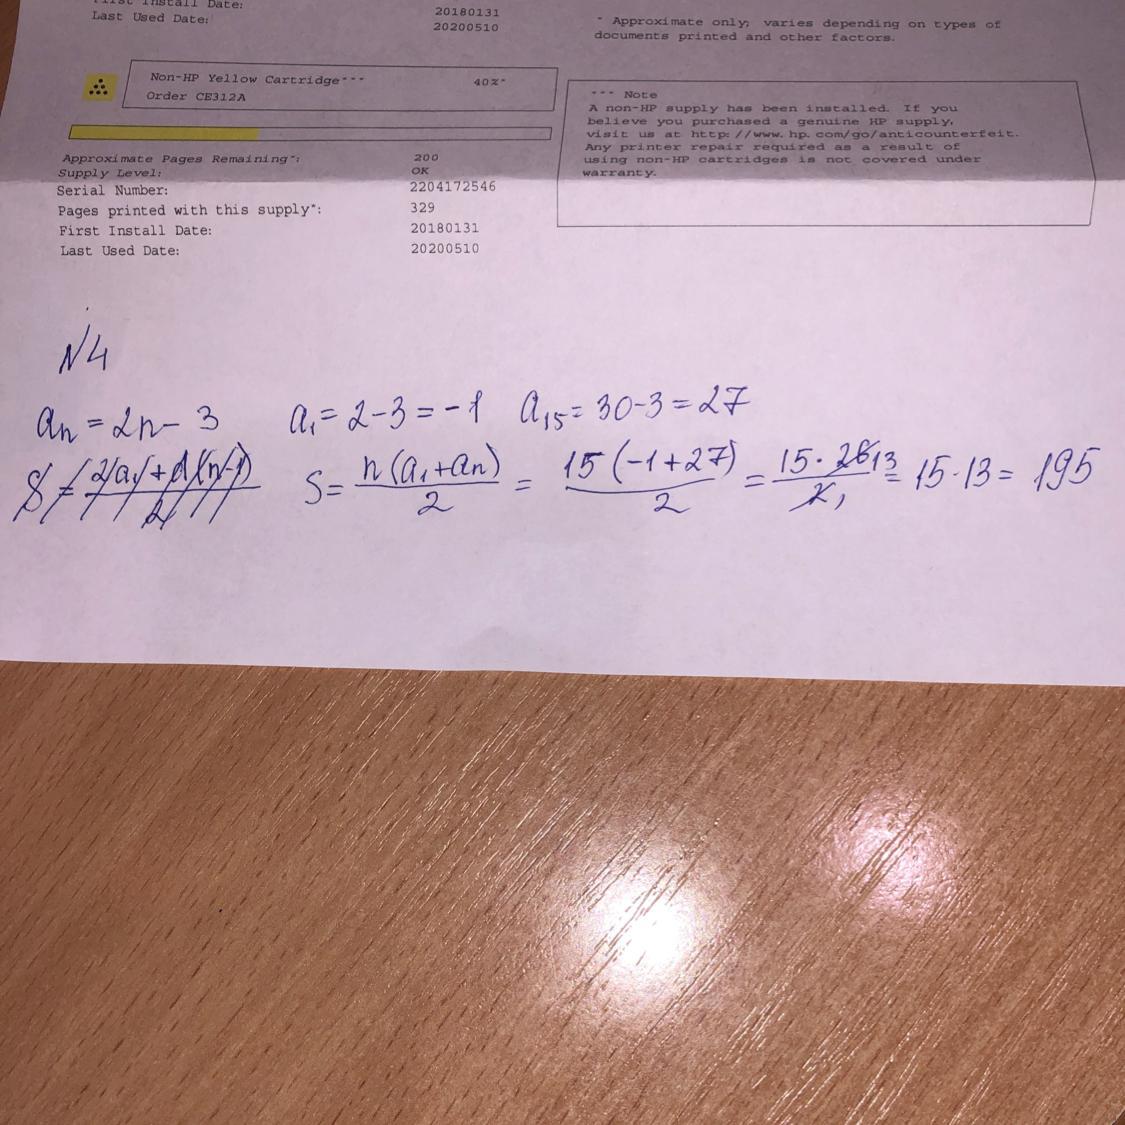 First Install Date: 20180131
Last Used Date: 20200510
* Approximate only; varies depending on types of
documents printed and other factors.
Non-HP Yellow Cartridge*** 40%*
Order CE312A
Approximate Pages Remaining*: 200
Supply Level: OK
Serial Number: 2204172546
Pages printed with this supply*: 329
First Install Date: 20180131
Last Used Date: 20200510
*** Note
A non-HP supply has been installed. If you
believe you purchased a genuine HP supply,
visit us at http://www.hp.com/go/anticounterfeit.
Any printer repair required as a result of
using non-HP cartridges is not covered under
warranty.
N4
aₙ = 2n - 3 a₁ = 2 - 3 = -1 a₁₅ = 30 - 3 = 27
S = n(a₁ + aₙ)/2 = 15(-1 + 27)/2 = 15 · 26 13/2 1 = 15 · 13 = 195